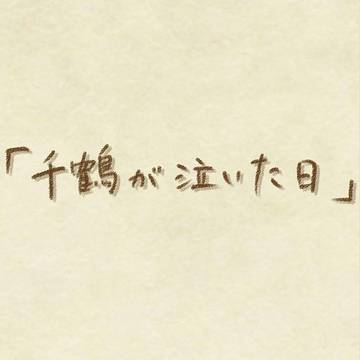 「千鶴が泣いた日」